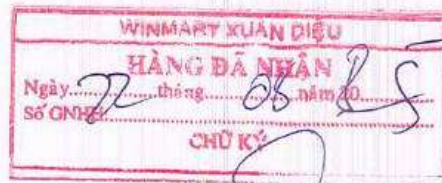 WINMART XUÂN DIỆU
HÀNG ĐÃ NHẬN
Ngày 22 tháng 05 năm 20
Số GNHH
CHỮ KÝ